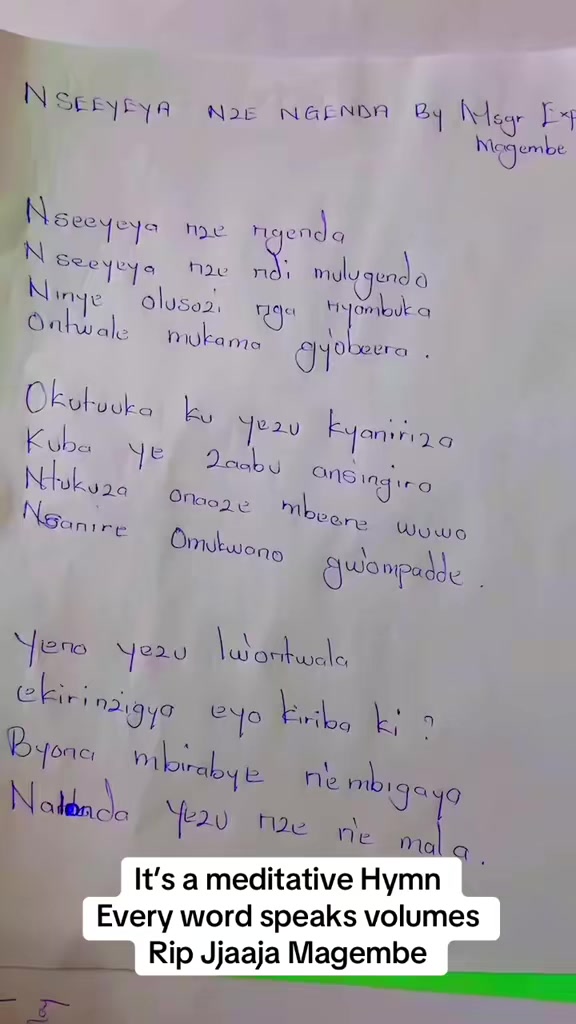 NSEEYEYA NZE NGENDA By Msgr Exp
Magembe
Nseeyeya nze ngenda
Nseeyeya nze ndi mulugendo
Ninye olusozi nga nyambuka
Ontwale mukama gy'obeera.
Okutuuka ku yezu kyaniriza
Kuba ye zaabu ansingira
Ntukuza onaaze mbeere wuwo
Nsanire Omukwono gw'ompadde.
Yeno yezu lw'ontwala
ekirinzigya eyo kiriba ki?
Byona mbirabye n'embigaya
Nalonda yezu nze n'e mala.
It's a meditative Hymn
Every word speaks volumes
Rip Jjaaja Magembe